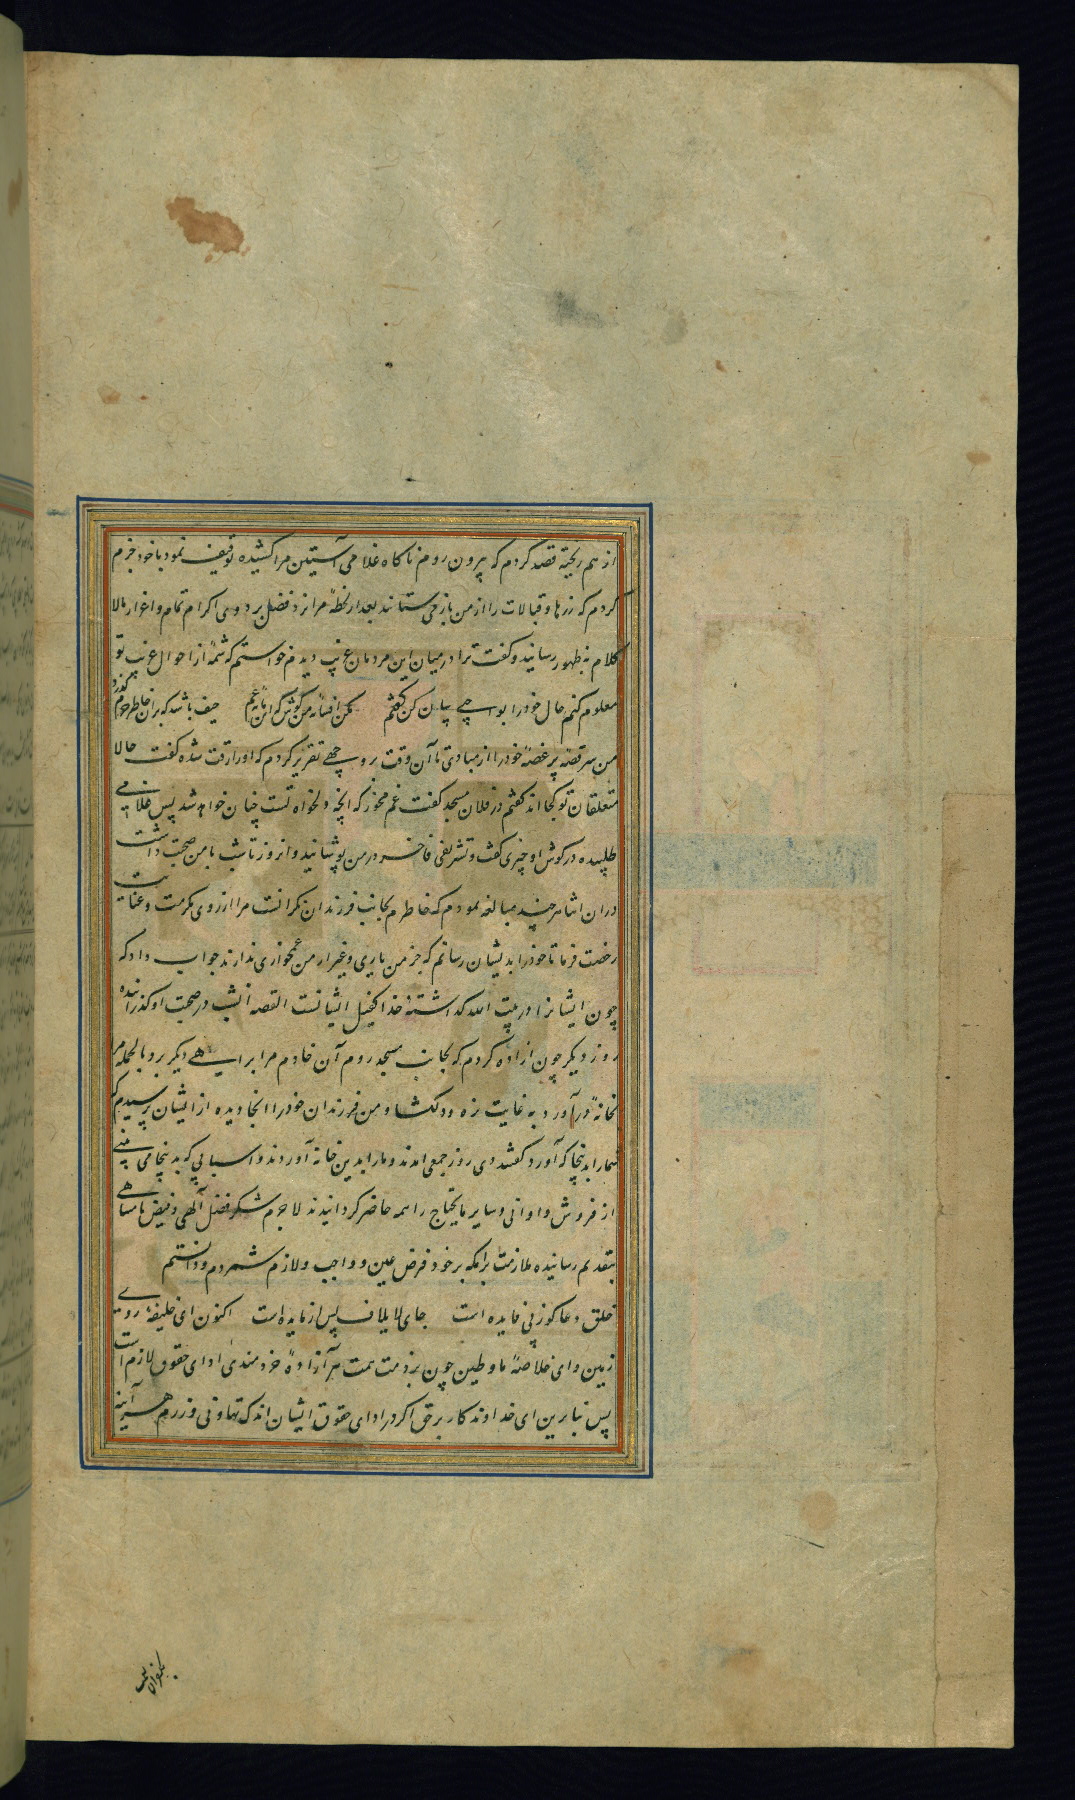 از هم ریخته قصد کردم که بیرون روم ناکاه غلامی آستین مرا کشیده توقیف نمود با خود جزم
کردم که زرها و قبالات را از من باز می ستانند بعد از لحظهٔ مرا نزد فضل برد وی اکرام تمام و اعزاز مالا
کلام به ظهور رسانید و کفت ترا در میان این مردمان غریب دیدم خواستم که شمهٔ از احوال غریب تو
معلوم کنم حال خود را بواجبی بیان کن کفتم مکن افسانهٔ من کوش که از نامهٔ غم حیف باشد که بران خاطر خرم کذرد
من سر قصهٔ پر غصهٔ خود را از مبادی تا آن وقت بر وجهی تقریر کردم که او را رقت شده کفت حالا
متعلقان تو کجا اند کفتم در فلان مسجد کفت غم مخور که انچه دلخواه تست چنان خواهد شد پس غلامی
طلبیده در کوش او چیزی کفت و تشریفی فاخر در من پوشانید و انروز تا شب با من صحبت داشت
دران اثنا هر چند مبالغه نمودم که خاطرم بجانب فرزندان نکرانست مرا از روی مکرمت و عنایت
رخصت فرما تا خود را بدیشان رسانم که جز من یاری و غیر از من غمخواری ندارند جواب داد که
چون ایشانرا در بیت الله کذاشتهٔ خدا کفیل ایشانست القصه آنشب در صحبت او کذرانیده
روز دیکر چون اراده کردم که بجانب مسجد روم آن خادم مرا براهی دیکر برد بالجمله مرا
بخانهٔ در آورد به غایت نزه و دلکشا و من فرزندان خود را انجا دیده از ایشان پرسیدم که
شما را بدینجا که آورد کفتند دی روز جمعی امدند و ما را بدین خانه آوردند و اسبابی که بدینجا می بینی
از فروش و اوانی و سایر ما یحتاج را همه حاضر کردانیدند لاجرم شکر فضل آلهی و فیض نامتناهی
بتقدیم رسانیده ملازمت برامکه بر خود فرض عین و واجب و لازم شمردم و دانستم
خلق دعا کوز پی فایده است جای لایلاف پس از مایده است اکنون ای خلیفهٔ روی
زمین و ای خلاصهٔ ماء وطین چون بر ذمت همت هر آزادهٔ خردمندی ادای حقوق لازم است
پس بنابرین ای خداوند کار بر حق اکر در ادای حقوق ایشان اندک تهاونی ورزم هر آینه